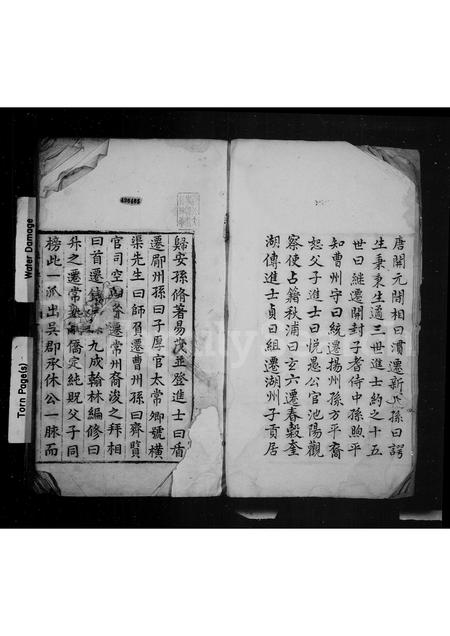 唐開元間相曰㵎遷新𠂆孫曰諤
生秉秉生適三世進士約之十五
世曰繼遷開封子耆侍中孫煦平
知曹州守曰統遷揚州孫方平裔
恕父子進士曰悦愚公官池陽觀
察使占籍秋浦曰玄六遷春穀奎
湖傳進士貞曰組遷湖州子貢居
歸安孫脩著易茂並登進士曰盾
遷鄖州孫曰子厚官太常卿號橫
渠先生曰師質遷曹州孫曰齊賢
官司空 遷常州裔浚之拜相
曰首遷 九成翰林編修曰
升之遷常熟 僑定純熙父子同
榜此一派出吳郡承休公一脉而
498605
Water Damage
Torn Page(s)